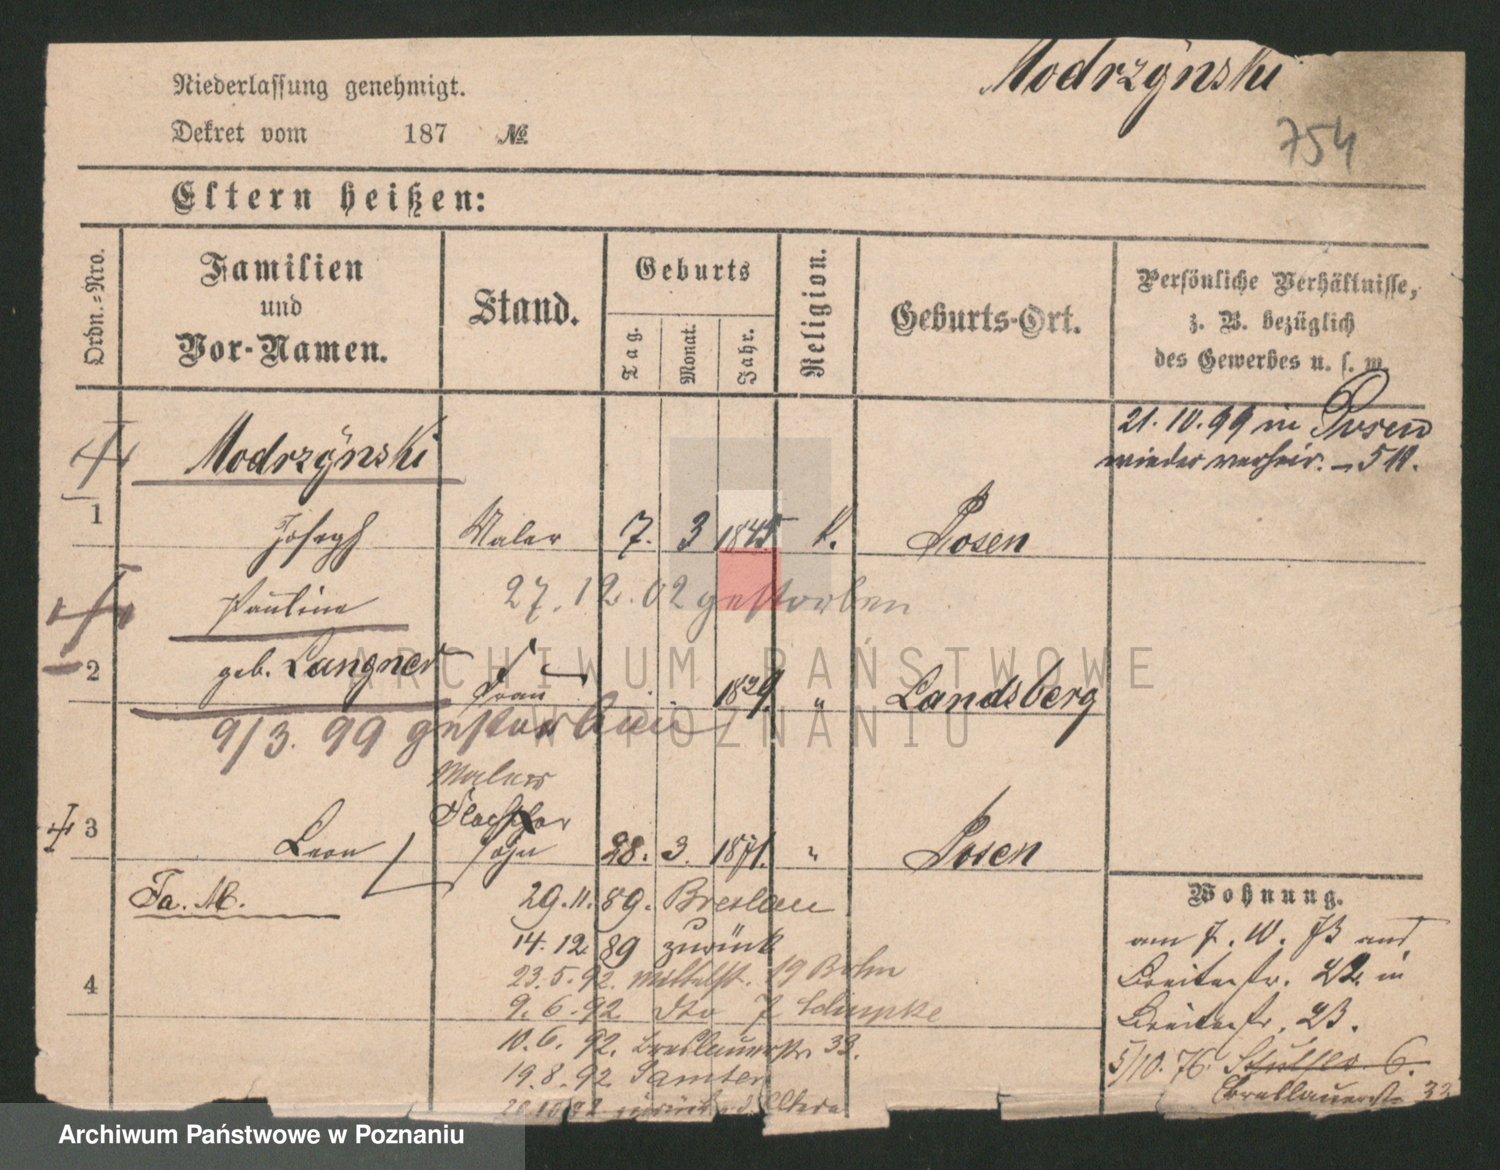 Modrzÿnski
754
Niederlassung genehmigt.
Dekret vom 187 №
Eltern heißen:
Ordn.-Nro.
Familien
und
Vor-Namen.
Stand.
Geburts
Tag.
Monat.
Jahr.
Religion.
Geburts-Ort.
Persönliche Verhältnisse,
z. B. bezüglich
des Gewerbes u. s. w.
21. 10. 99 in Posen
wieder verheir.
Modrzÿnski
1 Joseph Maler 7. 3 1845 k. Posen
27. 12. 02 gestorben
Pauline
2 geb. Langner Frau 1839. " Landsberg
9/3. 99 gestorben
Maler
3 Leon Sohn 28. 3. 1871. " Posen
Fa. M.
29. 11. 89. Breslau
14. 12. 89 zurück
4
23. 5. 92. 19
9. 6. 92 dto 7
10. 6. 92. Breslauerstr. 33.
19. 8. 92 Samter
92 zurück Eltern
Wohnung.
am 7. 10. 73 aus
Breitestr. 22 in
Breitestr. 23.
5/10. 76. 6.
Breslauerstr. 33
ARCHIWUM PAŃSTWOWE
W POZNANIU
Archiwum Państwowe w Poznaniu